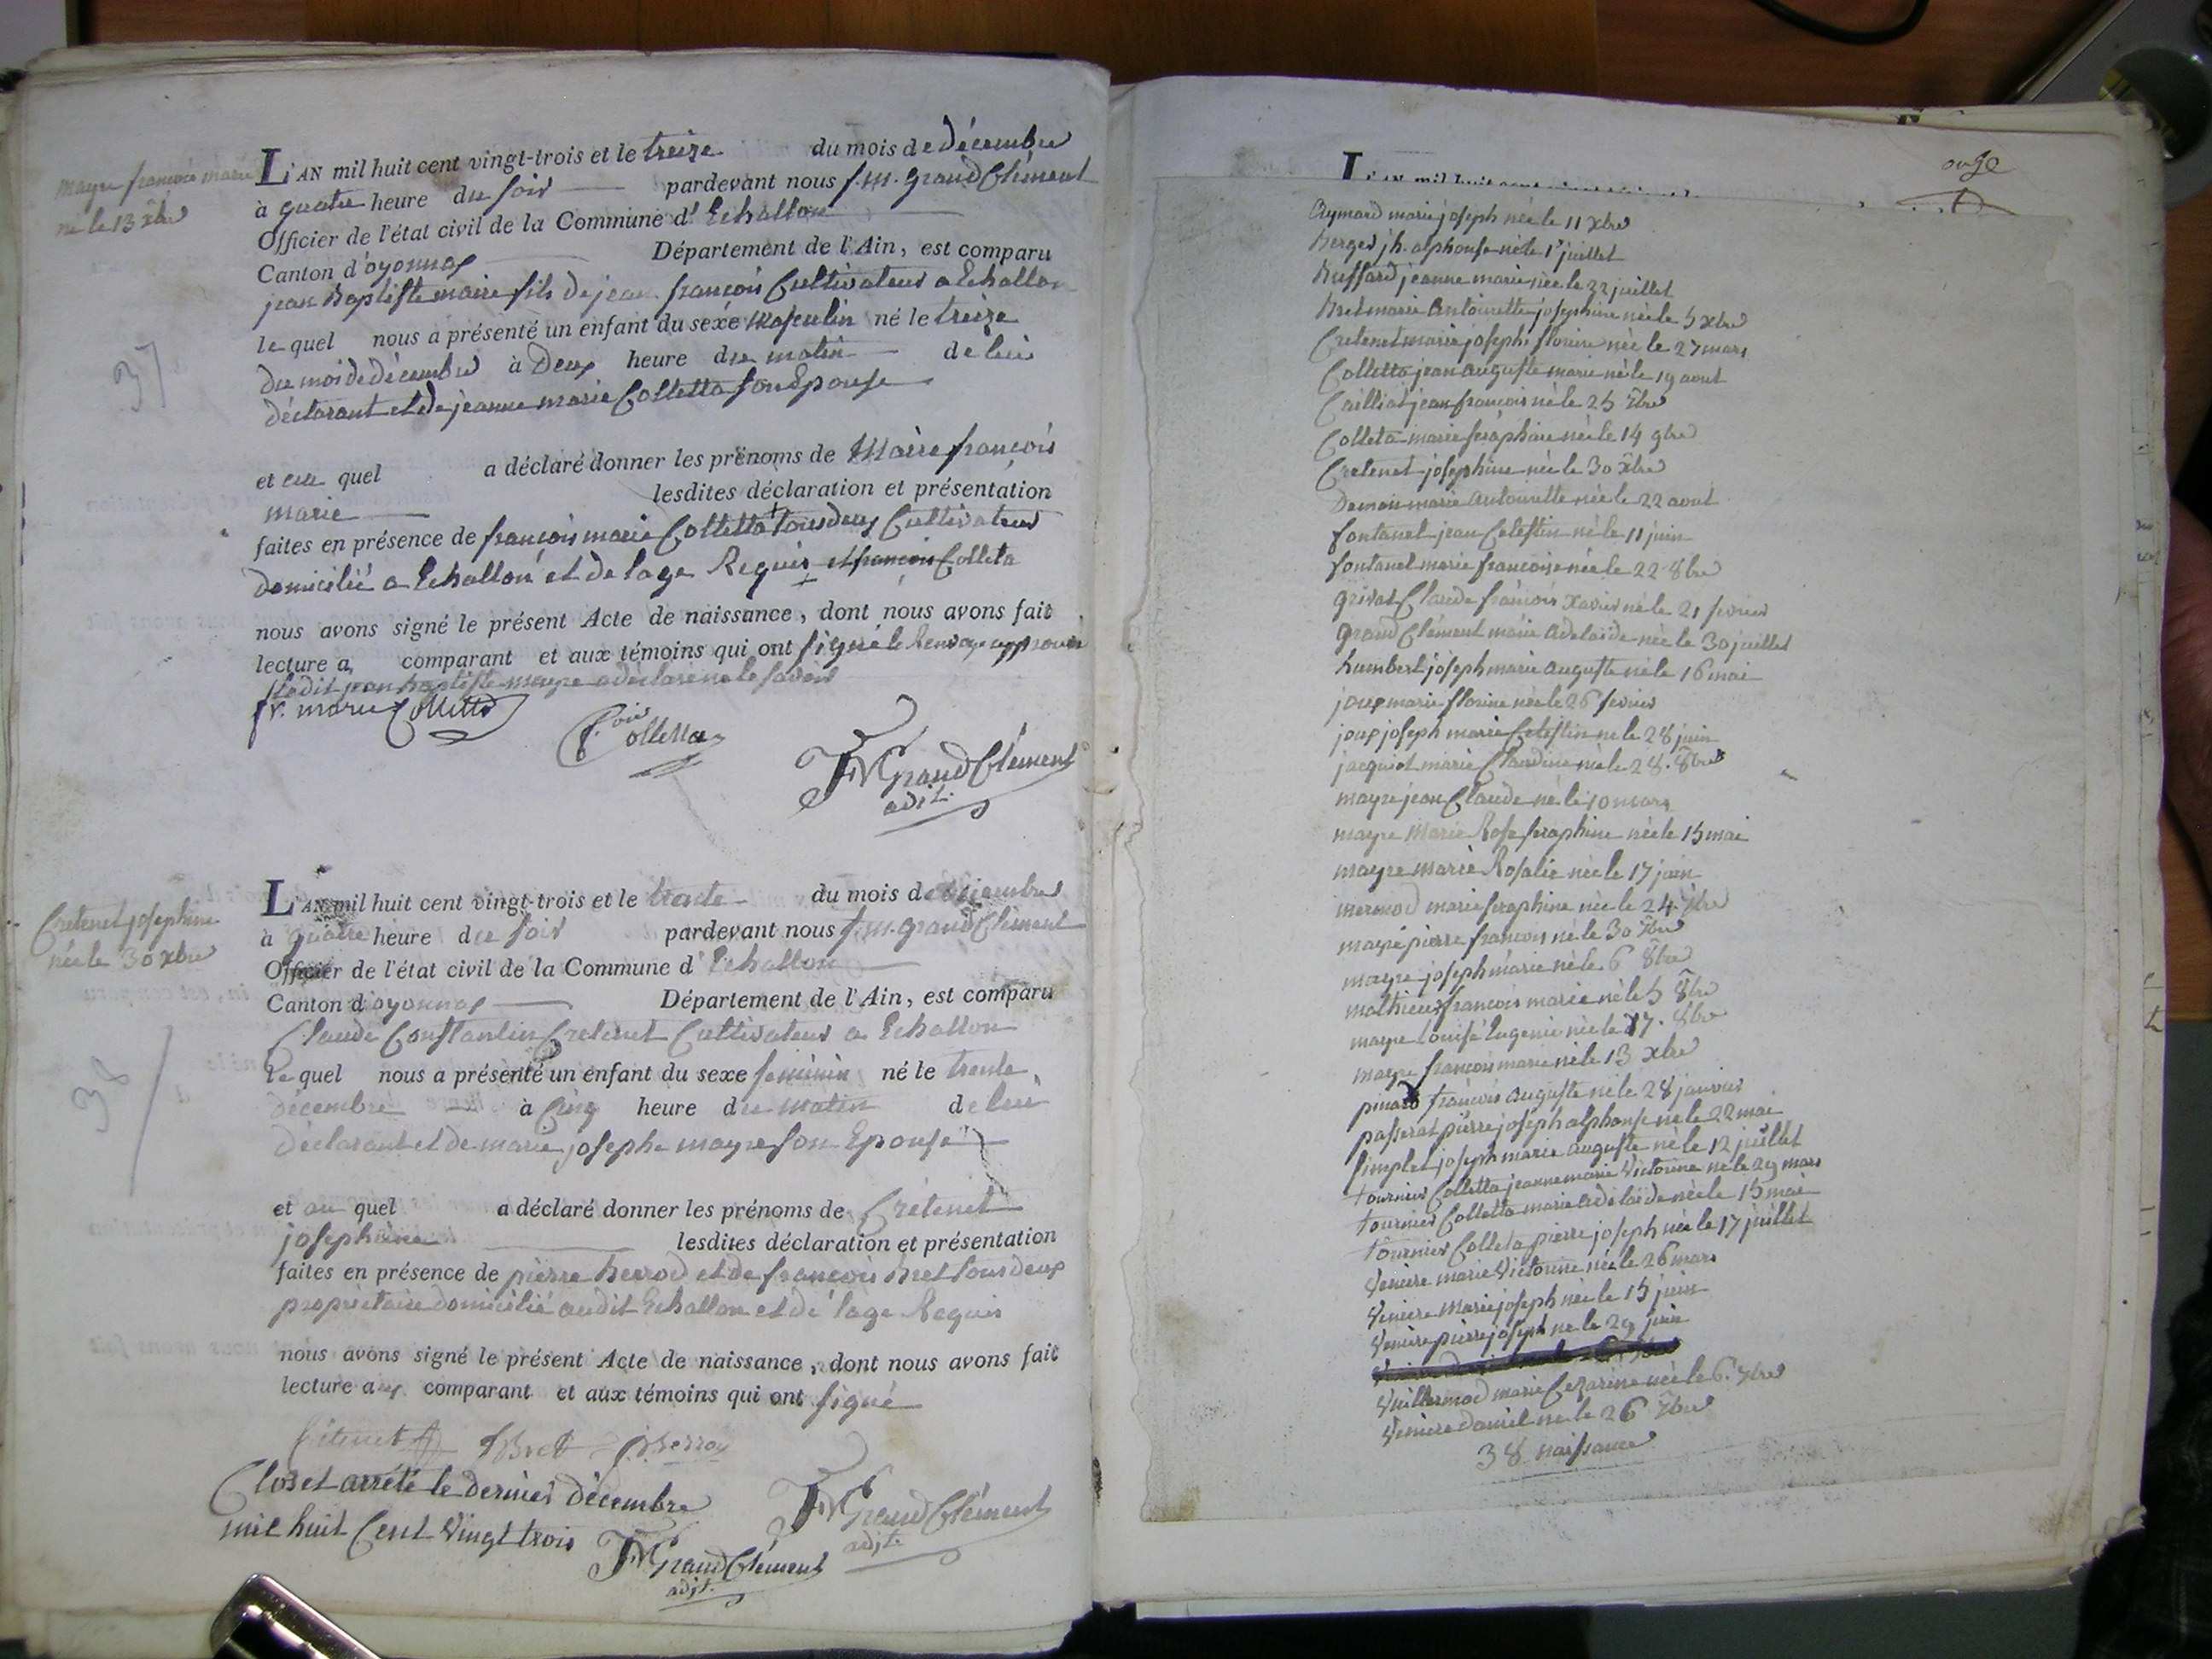 mayre françois marie
né le 13 xbre
L'AN mil huit cent vingt-trois et le treize du mois de décembre
à quatre heure du soir pardevant nous f. m. grand Clément
Officier de l'état civil de la Commune d' Echallon
Canton d'oyonnax Département de l'Ain, est comparu
jean baptiste maire fils de jean françois Cultivateur a Echallon
le quel nous a présenté un enfant du sexe masculin né le treize
du mois de décembre à Deux heure du matin de lui
déclarant et de jeanne marie Colletta son Epouse
37
et au quel a déclaré donner les prénoms de Maire françois
marie lesdites déclaration et présentation
faites en présence de françois marie Colletta + tous deux Cultivateur
domicilié a Echallon et de lage Requis et françois Colleta
nous avons signé le présent Acte de naissance, dont nous avons fait
lecture a comparant et aux témoins qui ont signé le Renvoy approuvé
ledit jean baptiste mayre a déclaré ne le savoir
fr. marie Colletta
fçois Colletta
FM Grand Clément
adjt.
Cretenet josephine
née le 30 xbre
L'AN mil huit cent vingt-trois et le trente du mois de décembre
à quatre heure du soir pardevant nous f. m. grand Clément
Officier de l'état civil de la Commune d' Echallon
Canton d'oyonnax Département de l'Ain, est comparu
Claude Constantin Cretenet Cultivateur a Echallon
le quel nous a présenté un enfant du sexe feminin né le trente
décembre à Cinq heure du matin de lui
déclarant et de marie josephe mayre son Epouse
38
et au quel a déclaré donner les prénoms de Crétenet
josephine lesdites déclaration et présentation
faites en présence de pierre herrod et de françois bret tous deux
propriétaire domicilié audit Echallon et de lage Requis
nous avons signé le présent Acte de naissance, dont nous avons fait
lecture aux comparant et aux témoins qui ont signé
Cretenet fBret
FM Grand Clément
adjt.
Clos et arrété le dernier décembre
mil huit Cent Vingt trois
FM Grand Clément
adjt.
onze
L'AN mil huit cent
Aymard marie joseph née le 11 xbre
berger jh. alphonse né le 1er juillet
buffard jeanne marie née le 22 juillet
bret marie Antoinette josephine née le 5 xbre
Cretenet marie joseph florine née le 27 mars
Colletta jean auguste marie né le 19 aout
Cailliat jean françois né le 25 7bre
Colleta marie séraphine née le 14 9bre
Cretenet josephine née le 30 xbre
Demon marie antoinette née le 22 aout
fontanel jean Celestin né le 11 juin
fontanel marie françoise née le 22 8bre
grivat Claude françois xavier né le 21 fevrier
grand Clément marie adelaide née le 30 juillet
humbert joseph marie auguste né le 16 mai
joux marie florine née le 26 fevrier
joux joseph marie Celestin né le 28 juin
jacquiot marie Claudine née le 28. 8bre
mayre jean Claude né le 10 mars
mayre Marie Rose séraphine née le 15 mai
mayre marie Rosalie née le 17 juin
mermod marie seraphine née le 24 7bre
mayre pierre françois né le 30 7bre
mayre joseph marie né le 6 8bre
mathieu françois marie né le 5 8bre
mayre Louise Eugenie née le 17. 8bre
mayre françois marie né le 13 xbre
pinard françois auguste né le 28 janvier
passerat pierre joseph alphonse né le 22 mai
simplet joseph marie auguste né le 12 juillet
tournier Colletta jeanne marie Victorine née le 29 mars
tournier Colletta marie adelaide née le 15 mai
tournier Colleta pierre joseph né le 17 juillet
Veniere marie Victorine née le 26 mars
Veniere Marie joseph née le 15 juin
Veniere pierre joseph né le 29 juin
Vuillermod marie Cezarine née le 6. 7bre
Veniere daniel né le 26 7bre
38 naissance